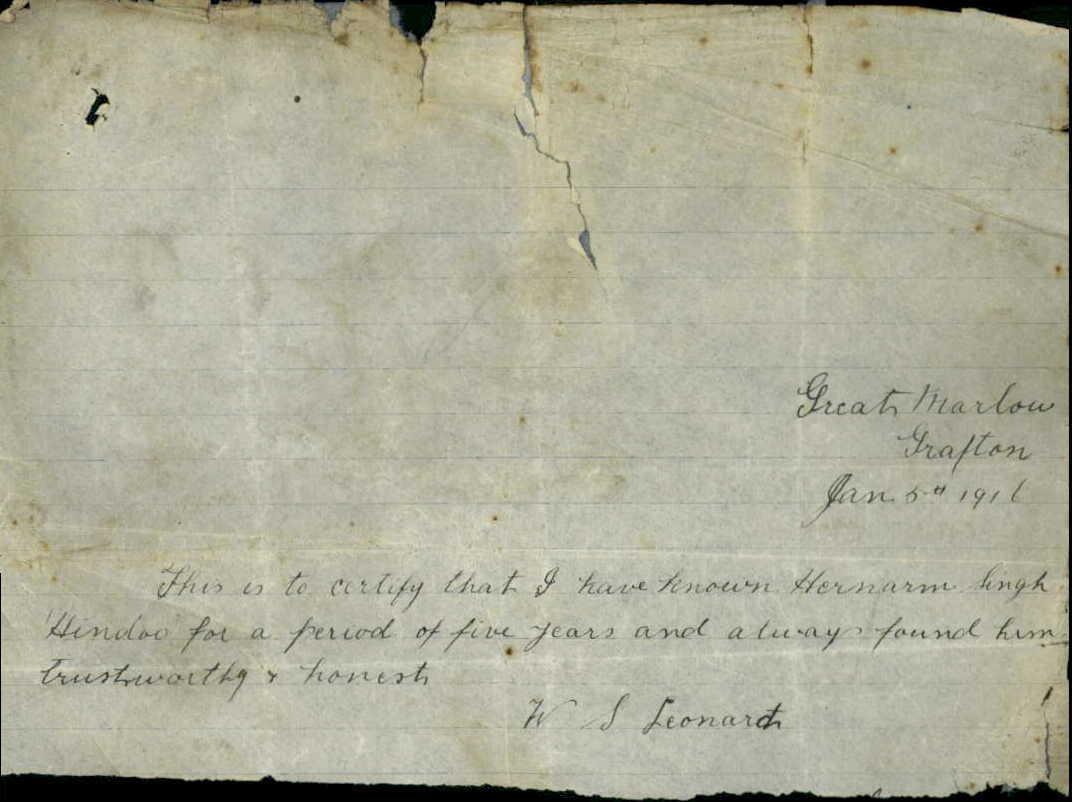 Great Marlow
Grafton
Jan 5th 1916
This is to certify that I have known Hernarm Singh
Hindoo for a period of five years and always found him
trustworthy & honest
W S Leonard